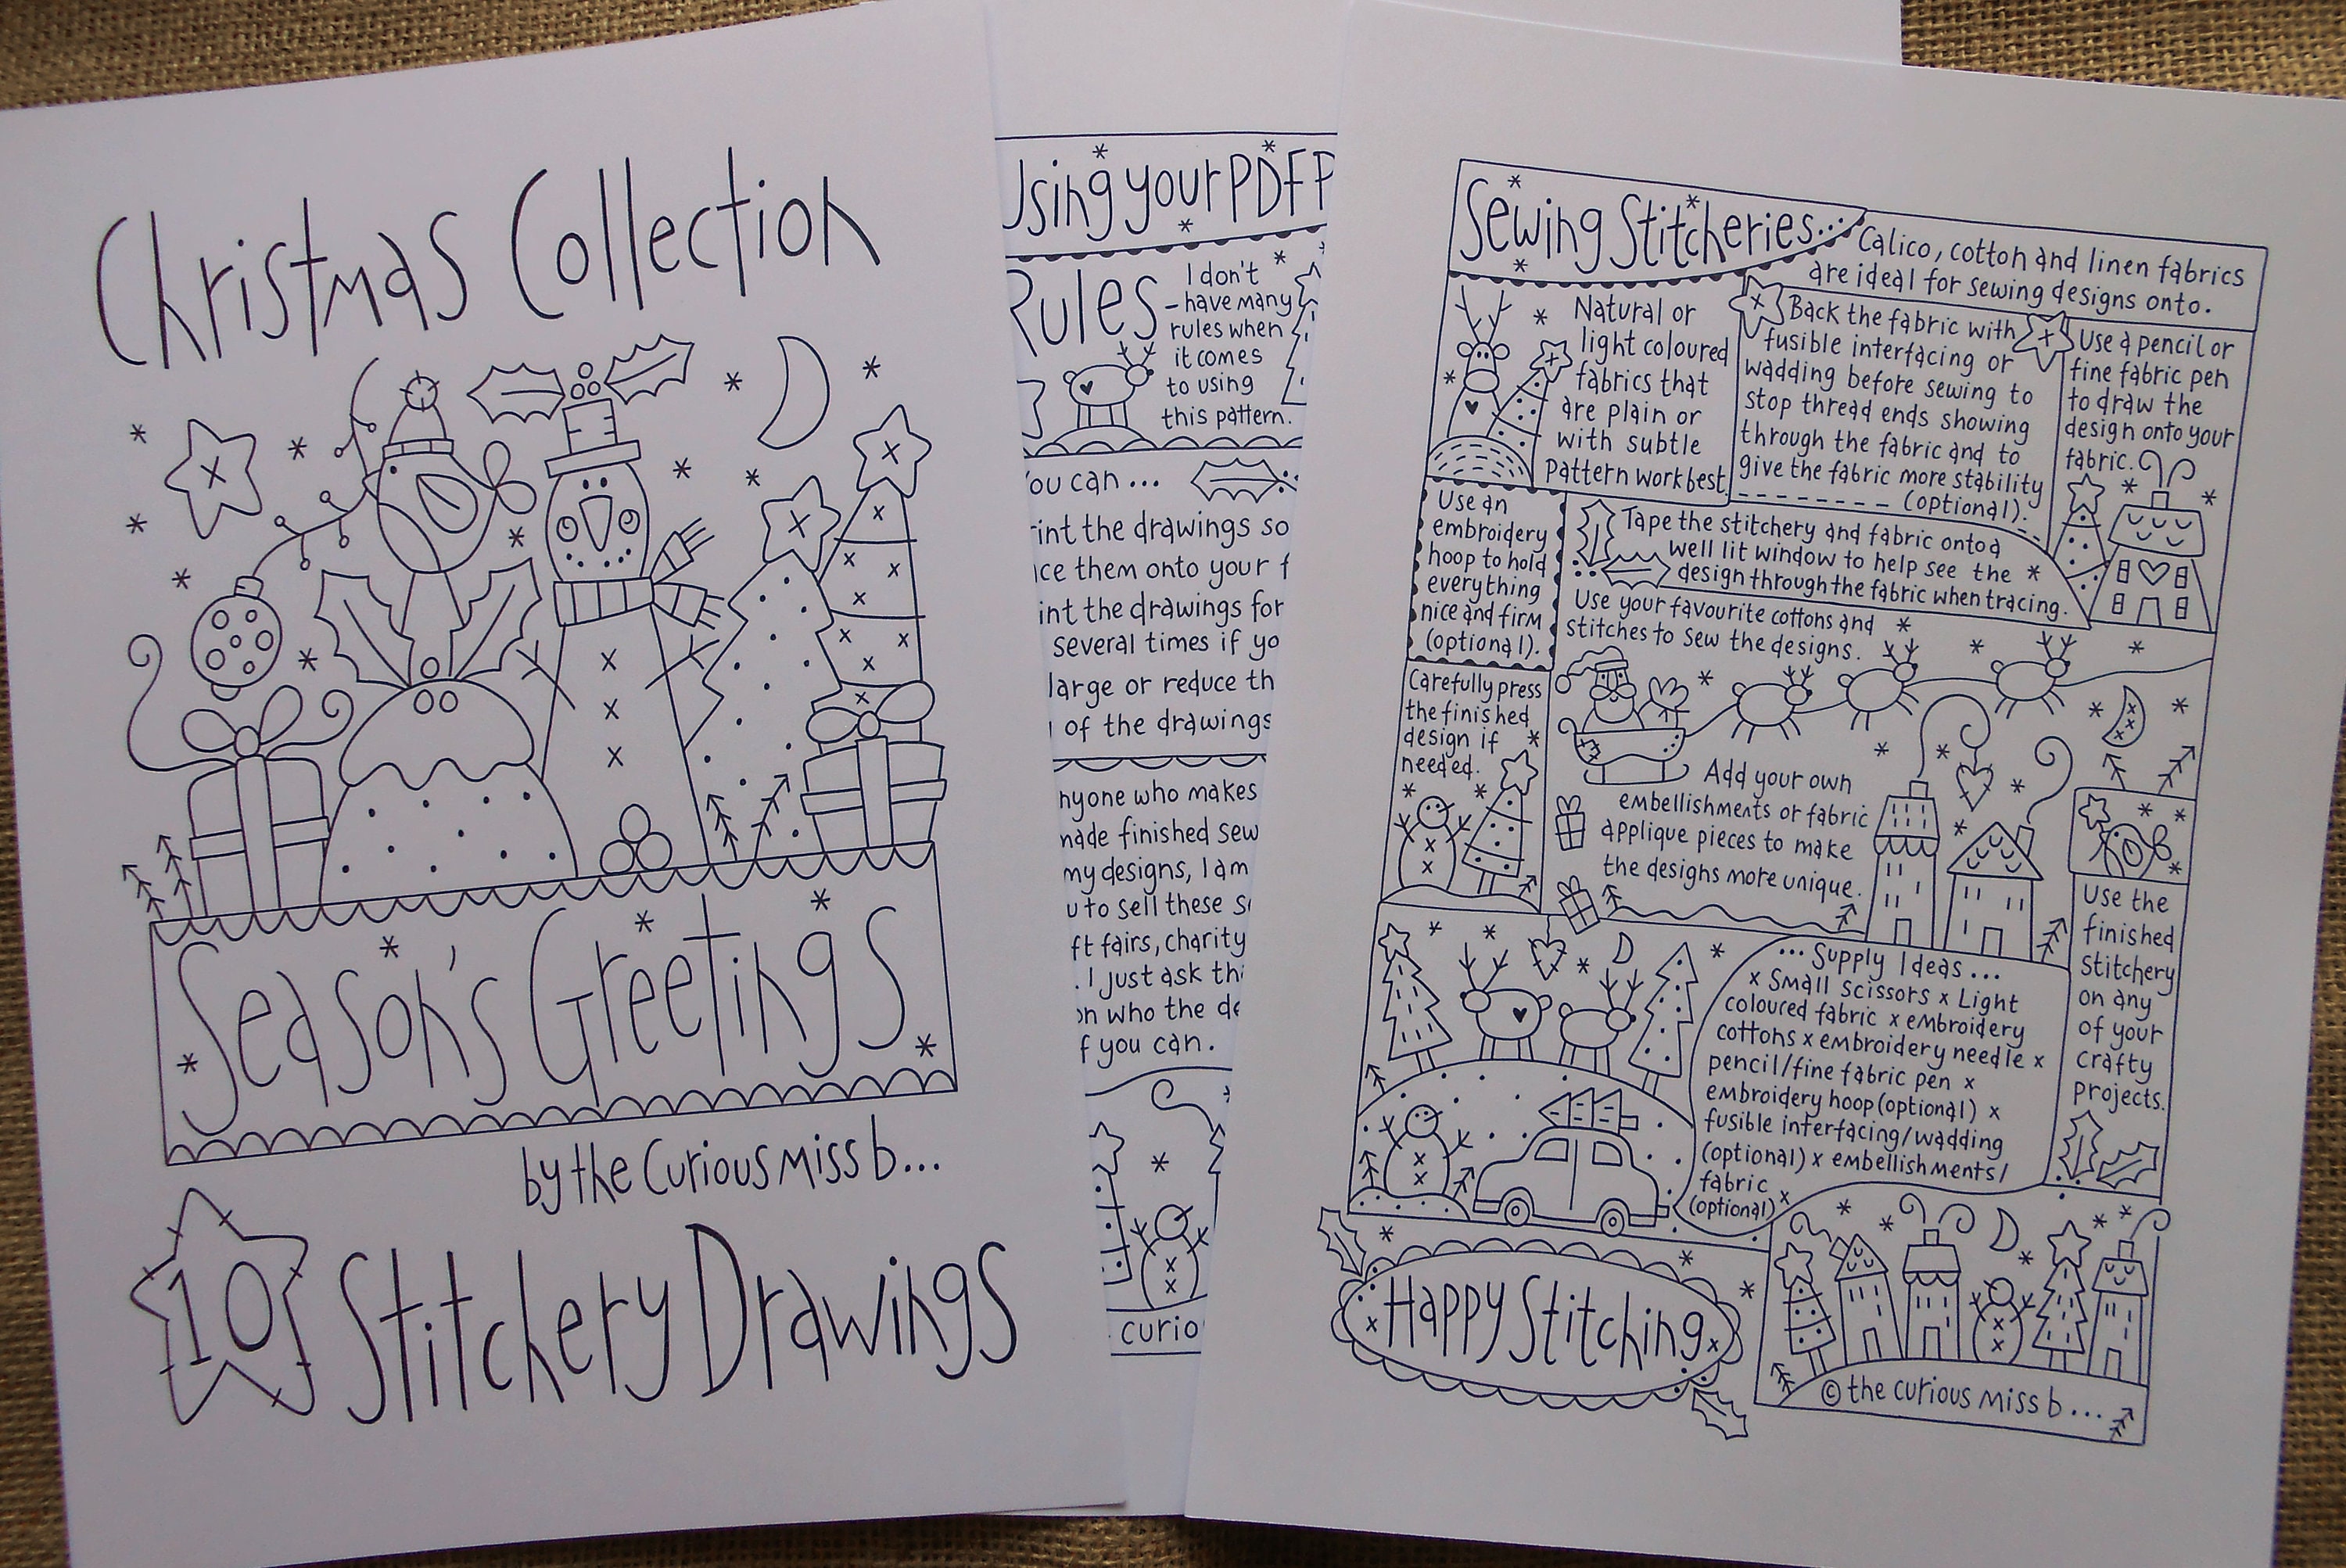 Christmas Collection
Season's Greetings
by the Curious Miss b...
10
Stitchery Drawings
Using your PDF P
Rules
I don't
- have many
rules when
it comes
to using
this pattern.
ou can ...
int the drawings so
ce them onto your f
int the drawings for
several times if yo
large or reduce th
of the drawings
nyone who makes
made finished sew
my designs, I am
u to sell these s
ft fairs, charity
. I just ask th
on who the de
f you can.
curio
Sewing Stitcheries...
Calico, cotton and linen fabrics
are ideal for sewing designs onto.
Natural or
light coloured
fabrics that
are plain or
with subtle
pattern work best.
Back the fabric with
fusible interfacing or
wadding before sewing to
stop thread ends showing
through the fabric and to
give the fabric more stability
(optional).
Use a pencil or
fine fabric pen
to draw the
design onto your
fabric.
Use an
embroidery
hoop to hold
everything
nice and firm
(optional).
Tape the stitchery and fabric onto a
well lit window to help see the
design through the fabric when tracing.
Use your favourite cottons and
stitches to sew the designs.
Carefully press
the finished
design if
needed.
Add your own
embellishments or fabric
applique pieces to make
the designs more unique.
Use the
finished
stitchery
on any
of your
crafty
projects.
... Supply Ideas ...
x Small scissors x Light
coloured fabric x embroidery
cottons x embroidery needle x
pencil/fine fabric pen x
embroidery hoop (optional) x
fusible interfacing/wadding
(optional) x embellishments/
fabric
(optional) x
Happy Stitching
© the curious miss b...